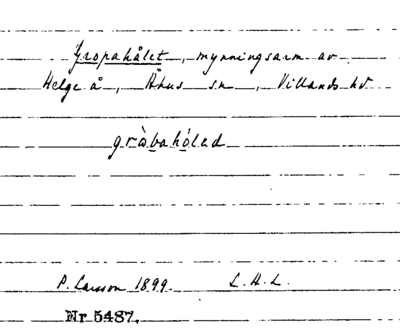 Gropahålet, mynningsarm av
Helge å, Åhus sn, Villands hd
gràbahólad
P. Larsson 1899. L. H. L.
Nr 5487.